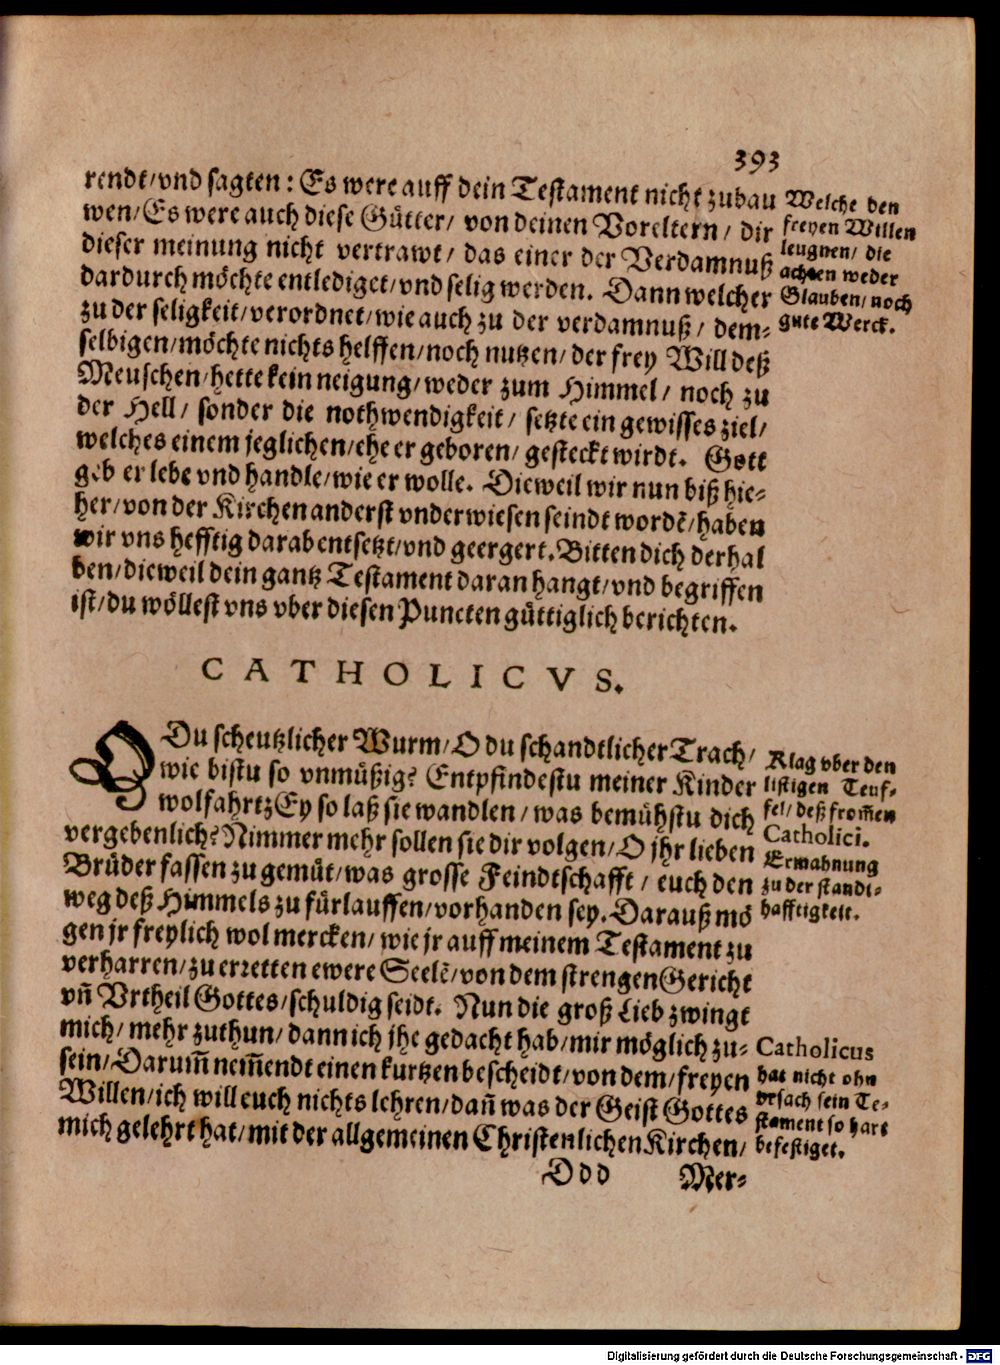 393
rendt/vnd sagten: Es were auff dein Testament nicht zubau
wen/Es were auch diese Gütter/ von deinen Voreltern/ dir
dieser meinung nicht vertrawt/ das einer der Verdamnuß
dardurch möchte entlediget/vnd selig werden. Dann welcher
zu der seligkeit/verordnet/wie auch zu der verdamnuß/ dem-
selbigen/möchte nichts helffen/noch nutzen/der frey Will deß
Meuschen/hette kein neigung/weder zum Himmel/ noch zu
der Hell/ sonder die nothwendigkeit/ setzte ein gewisses ziel/
welches einem jeglichen/ehe er geboren/ gesteckt wirdt. Gott
geb er lebe vnd handle/wie er wolle. Dieweil wir nun biß hie-
her/von der Kirchen anderst vnderwiesen seindt wordē/haben
wir vns hefftig darab entsetzt/vnd geergert. Bitten dich derhal
ben/dieweil dein gantz Testament daran hangt/vnd begriffen
ist/du wöllest vns vber diesen Puncten güttiglich berichten.
Welche den
freyen Willen
leugnen/ die
achten weder
Glauben/noch
gute Werck.
CATHOLICVS.
O Du scheutzlicher Wurm/O du schandtlicher Trach/
wie bistu so vnmüßig? Entpfindestu meiner Kinder
wolfahrtzEy so laß sie wandlen/ was bemühstu dich
vergebenlich? Nimmer mehr sollen sie dir volgen/O jhr lieben
Brüder fassen zu gemüt/was grosse Feindtschafft/ euch den
weg deß Himmels zu fürlauffen/vorhanden sey. Darauß mö
gen jr freylich wol mercken/ wie jr auff meinem Testament zu
verharren/zu erretten ewere Seelē/von dem strengen Gericht
vn̄ Vrtheil Gottes/schuldig seidt. Nun die groß Lieb zwingt
mich/ mehr zuthun/ dann ich jhe gedacht hab/mir möglich zu-
sein/Darum̄ nem̄endt einen kurtzen bescheidt/von dem/freyen
Willen/ich will euch nichts lehren/dan̄ was der Geist Gottes
mich gelehrt hat/mit der allgemeinen Christenlichen Kirchen/
Klag vber den
listigen Teuf-
fel/ deß from̄en
Catholici.
Ermahnung
zu der standt-
hafftigkeit.
Catholicus
hat nicht ohn
vrsach sein Te-
stament so hart
befestiget.
Ddd Mer-
Digitalisierung gefördert durch die Deutsche Forschungsgemeinschaft - DFG